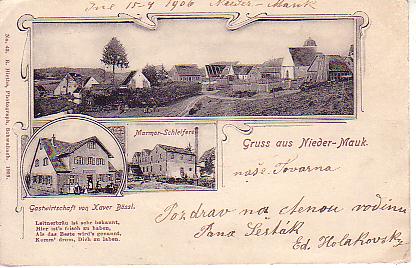 Dne 15-4 1906 Nieder-Mauk
No. 48. R. Hirths, Photograph, Schwabach. 1898.
Marmor-Schleiferei
Gruss aus Nieder-Mauk.
naše Tovarna
Gastwirtschaft von Xaver Bössl.
Leitnerbräu ist sehr bekannt,
Hier ist's frisch zu haben,
Als das Beste wird's genannt,
Komm' drum, Dich zu laben.
Pozdrav na ctenou rodinu
Pana Šesták
Ed. Holakovsky